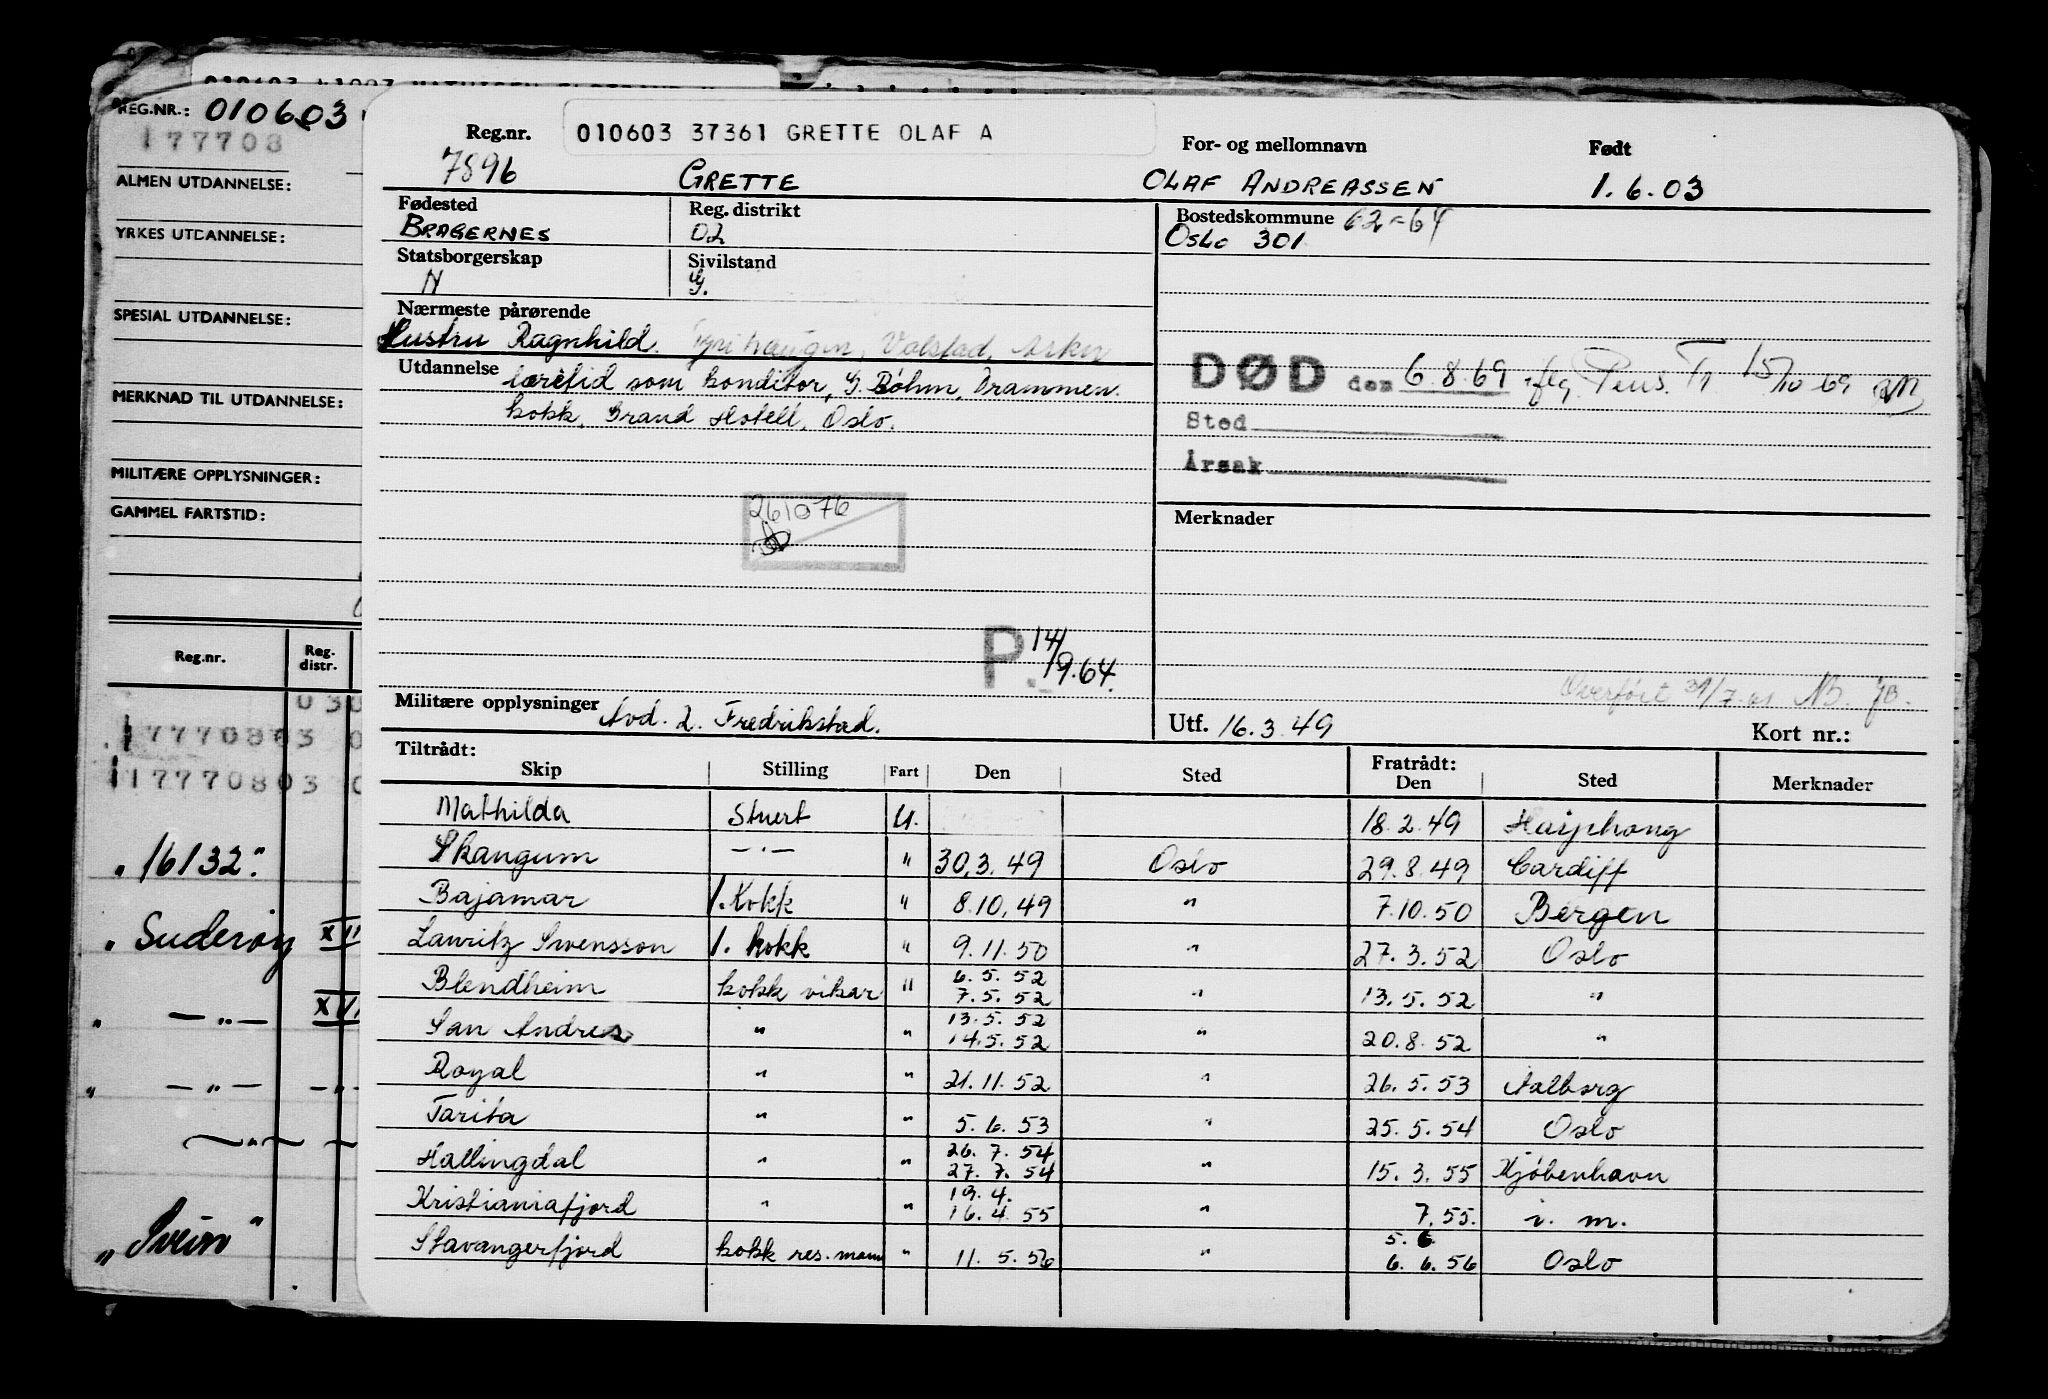 REG.NR.: 010603
177708
ALMEN UTDANNELSE:
YRKES UTDANNELSE:
SPESIAL UTDANNELSE:
MERKNAD TIL UTDANNELSE:
MILITÆRE OPPLYSNINGER:
GAMMEL FARTSTID:
Reg.nr. Reg. distr.
"16132"
"Suderøy XII
" — " —
" — " — — " —
"Svein"
Reg.nr. 010603 37361 GRETTE OLAF A For- og mellomnavn Født
7896 GRETTE OLAF ANDREASSEN 1.6.03
Fødested Reg. distrikt Bostedskommune 62-64
BRAGERNES 02 Oslo 301
Statsborgerskap Sivilstand
N G.
Nærmeste pårørende
Hustru Ragnhild. Valstad, Asker
Utdannelse læretid som konditor, G. Bøhm, Drammen.
kokk, Grand Hotell, Oslo.
DØD den 6.8.69 iflg. Pens. Tr 15/10 69
Sted
Årsak
261076
Merknader
P. 14/9.64.
Overført 31/7.61
Militære opplysninger Avd. 2. Fredrikstad.
Utf. 16.3.49 Kort nr.:
Tiltrådt: Fratrådt:
Skip Stilling Fart Den Sted Den Sted Merknader
Mathilda Stuert U. 18.2.49 Haiphong
Skaugum — " — " 30.3.49 Oslo 29.8.49 Cardiff
Bajamar 1. Kokk " 8.10.49 " 7.10.50 Bergen
Lauritz Swensson 1. kokk " 9.11.50 " 27.3.52 Oslo
Blendheim kokk vikar " 6.5.52 7.5.52 " 13.5.52 "
San Andres " " 13.5.52 14.5.52 " 20.8.52 "
Royal " " 21.11.52 " 26.5.53 Aalborg
Tarita " " 5.6.53 " 25.5.54 Oslo
Hallingdal " " 26.7.54 27.7.54 " 15.3.55 Kjøbenhavn
Kristianiafjord " " 19.4. 16.4.55 " 7.55. i. m.
Stavangerfjord kokk res. mann " 11.5.56 " 5.6 6.6.56 Oslo